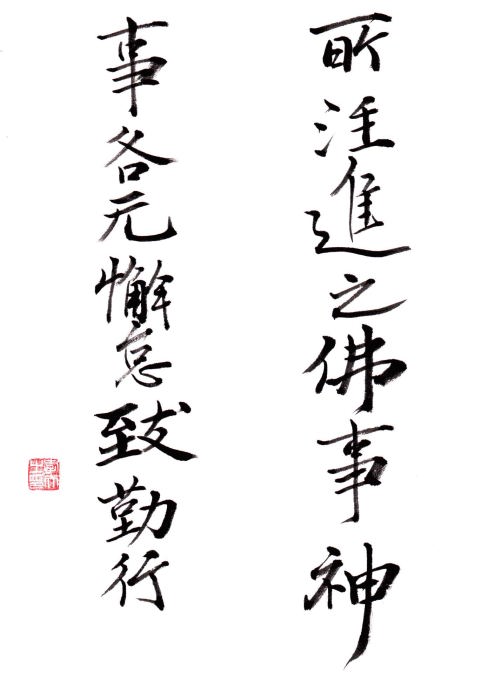 所注進之佛事神
事各元懈怠致勤行